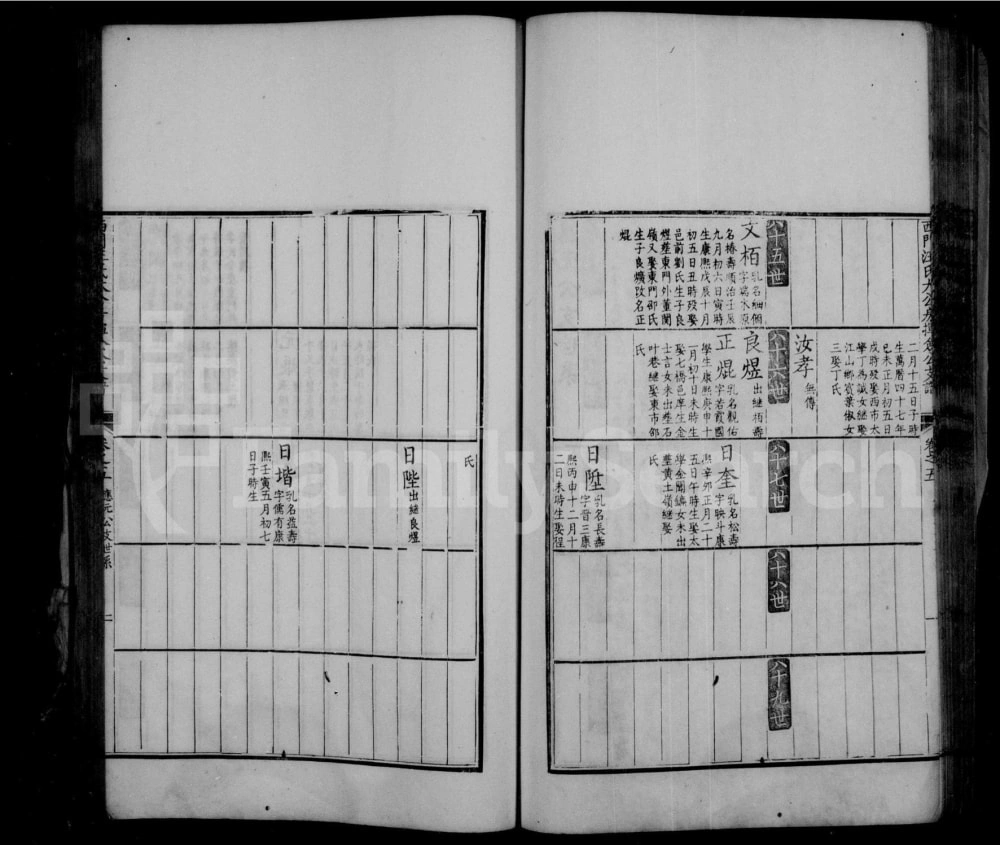 二月十五日子時
生萬曆四十七年
己未正月初五日
戌時歿娶西市太
學丁爲誠女繼娶
江山鄉賓葉俶女
三娶丁氏
汝孝
無傳
八十五世
八十六世
八十七世
八十八世
八十九世
文栢
乳名細個
字瑞水原
名椿壽順治壬辰
九月初六日寅時
生康熙戊辰十月
初五日丑時歿娶
邑前劉氏生子良
煜塟東門外董閘
嶺又娶東門邵氏
生子良爌改名正
焜
良煜
出繼栢壽
正焜
乳名觀佑
字若霞國
學生康熙庚申十
一月初十日未時生
娶七橋邑庠生金
士言女未出塟石
叶巷繼娶東市邵
氏
日奎
乳名松壽
字映斗康
熙辛卯正月二十
五日午時生娶太
學金聞鏞女未出
塟黄土嶺繼娶
氏
日陞
乳名長壽
字晋三康
熙丙申十二月十
二日未時生娶程
氏
日陛
出繼良煜
日堦
乳名益壽
字儒有康
熙壬寅五月初七
日子時生
應元公支世系
FamilySearch